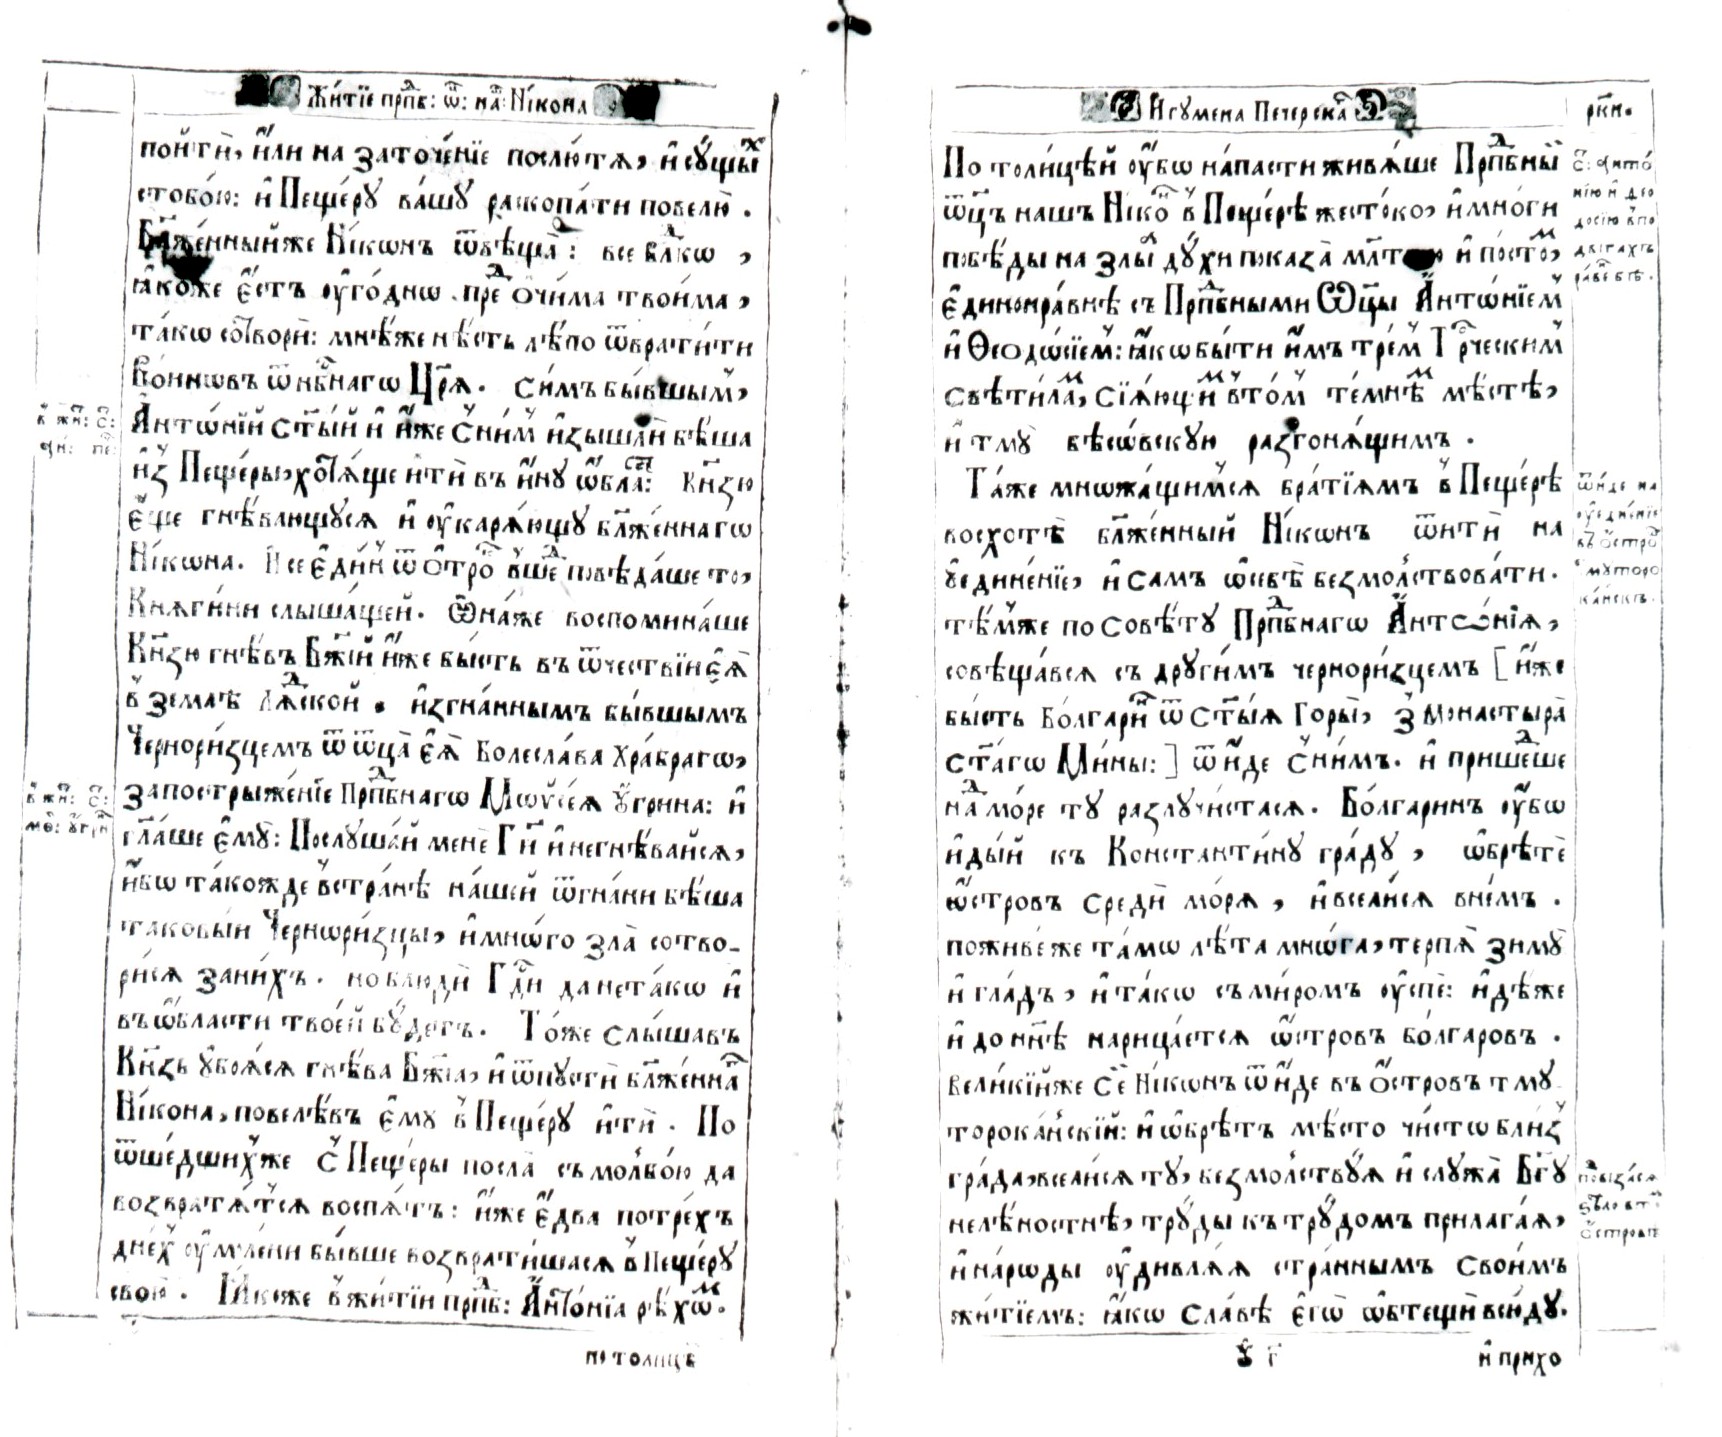 Житїе прпⷣб: ѿ: нⷲа: Ні́кона
пои́ти̑, и҆̀ли на заточе́нїе послю́тѧ, и҆ су́щыⷯ
стобо́ю: и҆ Пеще́рꙋ ва́шꙋ раскопа́ти повелю̀.
Бл҃же́нныйже Ні́кѡнъ ѿвѣща̀: все влⷣкѡ,
ꙗ҆́коже є҆́стъ ѹ҆го́днѡ преⷣ о҆чи́ма твои́ма,
та́кѡ сотворѝ: мнѣ́же нѣ́сть лѣ́по ѿврати́ти
Во́инѡвъ ѿ нб҃снагѡ Цр҃ѧ̀. Си́мъ бы́вшым,
А҆нтѡ́нїй ст҃ы́й и҆ и҆́же с̾ни́м и҆зышлѝ бѣ́ша
и҆з̾ Пеще́ры, хотѧ́ще итѝ въ и҆́нꙋ ѡ҆́блаⷭ҇: Кн҃зю
є҆́ще гнѣ́вающꙋсѧ и҆ ѹ҆карѧ́ющꙋ бл҃же́ннагѡ
Ні́кѡна. И се є҆ди́н ѿ о҆троⷦ в̾шеⷣ повѣ́даше то,
Кнѧги́ни слы́шащей. Ѻ҆на́же воспомина́ше
Кн҃зю гнѣ́въ Бж҃їй и҆́же бы́сть въ ѿчествїи є҆ѧ̀
в̾ землѣ̀ Лѧⷣской. и҆згна́ннымъ бы́вшымъ
Черно́ри́зцемъ ѿ ѿца̀ є҆ѧ̀ Болесла́ва Хра́брагѡ,
запостры́же́нїе Прпⷣбнагѡ Мѡѷсе́ѧ Ѹ҆́грина: и҆
гл҃а́ше є҆мꙋ̀: Послꙋша́й менѐ Гн҃и и҆ негнѣ́вайсѧ,
и҆́бѡ та́кожде в̾стра́нѣ на́шей ѿгна́ни бѣ́ша
таковы́и Чернѡри́зцы, и҆ мнѡ́го зла̀ сотво-
ри́сѧ зани́хъ. но блюдѝ Гдⷭ҇и данета́кѡ и҆
въ ѡ҆́бласти твое́й бꙋ́детъ. То́же слы́шавъ
Кн҃зь ѹ҆боѧ́сѧ гнѣ́ва Бж҃їѧ, и҆ ѿпꙋстѝ бл҃же́ннаⷢ
Ні́кона, повелѣ́въ є҆мꙋ̀ в̾ Пеще́рꙋ и҆тѝ. По
ѿше́дших̾же с̾ Пеще́ры посла̀ съ молбо́ю да
возвратѧ́тсѧ воспѧ́ть: и҆́же є҆два̀ потре́хъ
дне́х ѹ҆мле́ни бы́вше возврати́шасѧ в̾ Пеще́рꙋ
свою̀. Ꙗ҆́коже в̾жи́тїи прпⷣб: А҆нто́нїа рѣ́хѡⷨ.
по толицѣ
в̾ жи҃: с҃:
в̾ жи҃: с҃:
мѡѷ: ѹ҆гри҃
И҆гꙋмена Печерскаⷢ
рки.
По толи́цѣй ѹ҆́бѡ на́пасти живѧ́ше Прпⷣбны́й
ѿц҃ъ нашъ Ні́коⷩ в̾ Пеще́рѣ жесто́ко, и҆ мно́ги
побѣ́ды на злы́ дꙋ́хи показа̀ млт҃вою и҆ посто́ⷨ,
є҆динонра́внѣ съ Прпⷣбными Ѿц҃ы̀ А҆нтѡ́нїем
и҆ Ѳеодѡ́сїем: ꙗ҆́кѡ бы́ти и҆́мъ тре́м Грⷭ҇ческим
свѣти́лаⷨ, сїѧ́ющиⷨ в̾то́м те́мнѣⷨ мѣ́стѣ,
и҆ тмꙋ̀ бѣсѡ́вскꙋю разгонѧ́щимъ.
Та́же мнѡжа́щим̾сѧ бра́тїѧмъ в̾ Пеще́рѣ
восхотѣ̀ бл҃же́нный Ні́кѡнъ ѿитѝ на
ѹ҆едине́нїе, и҆ самъ ѡ҆себѣ̀ безмолствова́ти.
тѣ́мже по совѣ́тꙋ Прпⷣбнагѡ А҆нтѡ́нїѧ,
совѣща́всѧ съ дрꙋги́мъ черно́ри́зцемъ [и҆́же
бы́сть Бо́лгариⷩ ѿ Ст҃ы́ѧ Горы̀, з̾ Монастырѧ̀
Ст҃а́гѡ Ми́ны:] ѿи́де с̾ни́мъ. и҆ прише́ⷣше
наⷣ мо́ре тꙋ̀ разлꙋчи́стасѧ. Бо́лгаринъ ѹ҆́бѡ
и҆ды́й къ Константи́нꙋ гра́дꙋ, ѡ҆брѣ́те
ѡ҆́стровъ средѝ мо́рѧ, и҆ всели́сѧ вне́мъ.
поживе́же та́мѡ лѣ́та мнѡ́га, терпѧ̀ зи́мꙋ
и҆ гла́дъ, и҆ та́кѡ съ ми́ромъ ѹ҆спѐ: и҆дѣ́же
и҆ до нн҃ѣ нарица́етсѧ ѡ҆́стровъ бо́лгаровъ.
вели́кїйже се́й Ні́кѡнъ ѿи́де въ О҆́стровъ тмꙋ
торока́нскїй: и҆ ѡ҆брѣ́тъ мѣ́сто чи́стѡ бли́з
гра́да, всели́сѧ тꙋ̀, безмолствꙋ́ѧ и҆ слꙋжа̀ Бг҃ꙋ
нелѣ́ностнѣ, трꙋды̀ къ трꙋдѡ́мъ прилага́ѧ,
и҆ на́рѡды ѹ҆дивлѧ́ѧ стра́ннымъ свои́мъ
жи́тїемъ: ꙗ҆́кѡ сла́вѣ є҆гѡ̀ ѡ҆бтещѝ всю́дꙋ.
и҆ прихо
ѿи́де на
ѹ҆едине́нїе
въ О҆́строⷡ
тмꙋторо
ка́нскъ.
о҆́стровѣ